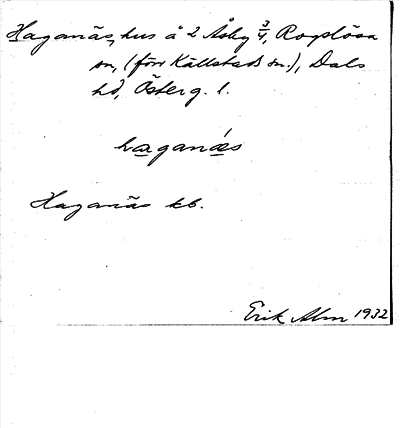 Haganäs, hus å 2 Åsby 3/4, Rogslösa
sn, (förr Källstads sn.), Dals
hd, Österg. l.
haganæs
Haganäs kb.
Erik Alm 1932